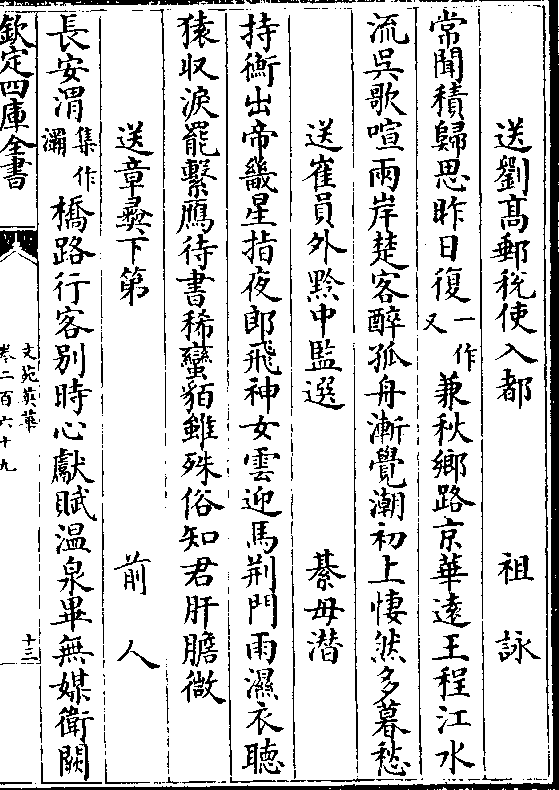 送劉髙郵稅使入都　祖詠
常聞積歸思昨日復一作又兼秋鄉路京華逺王程江水
流吳歌喧兩岸楚客醉孤舟漸覺潮初上悽然多暮愁
送崔員外黔中監選　綦毋潛
持衡出帝畿星指夜郎飛神女雲迎馬荆門雨濕衣聽
猿収淚罷繫鴈待書稀蠻貊雖殊俗知君肝膽微
送章彞下第　前人
長安渭集作灞橋路行客别時心獻賦温泉畢無媒衛闕
欽定四庫全書
文苑英華
卷二百六十九
十三